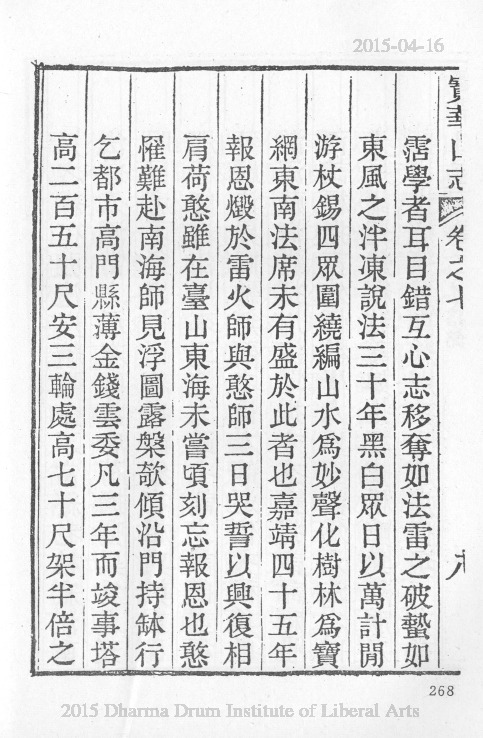 2015-04-16
寶華山志 卷之七 八
霑學者耳目錯互心志移奪如法雷之破蟄如
東風之泮凍說法三十年黑白眾日以萬計閒
游杖錫四眾圍繞編山水爲妙聲化樹林爲寶
網東南法席未有盛於此者也嘉靖四十五年
報恩燬於雷火師與憨師三日哭誓以興復相
肩荷憨雖在臺山東海未嘗頃刻忘報恩也憨
罹難赴南海師見浮圖露槃欹傾沿門持缽行
乞都市高門縣薄金錢雲委凡三年而竣事塔
高二百五十尺安三輪處高七十尺架半倍之
268
2015 Dharma Drum Institute of Liberal Arts